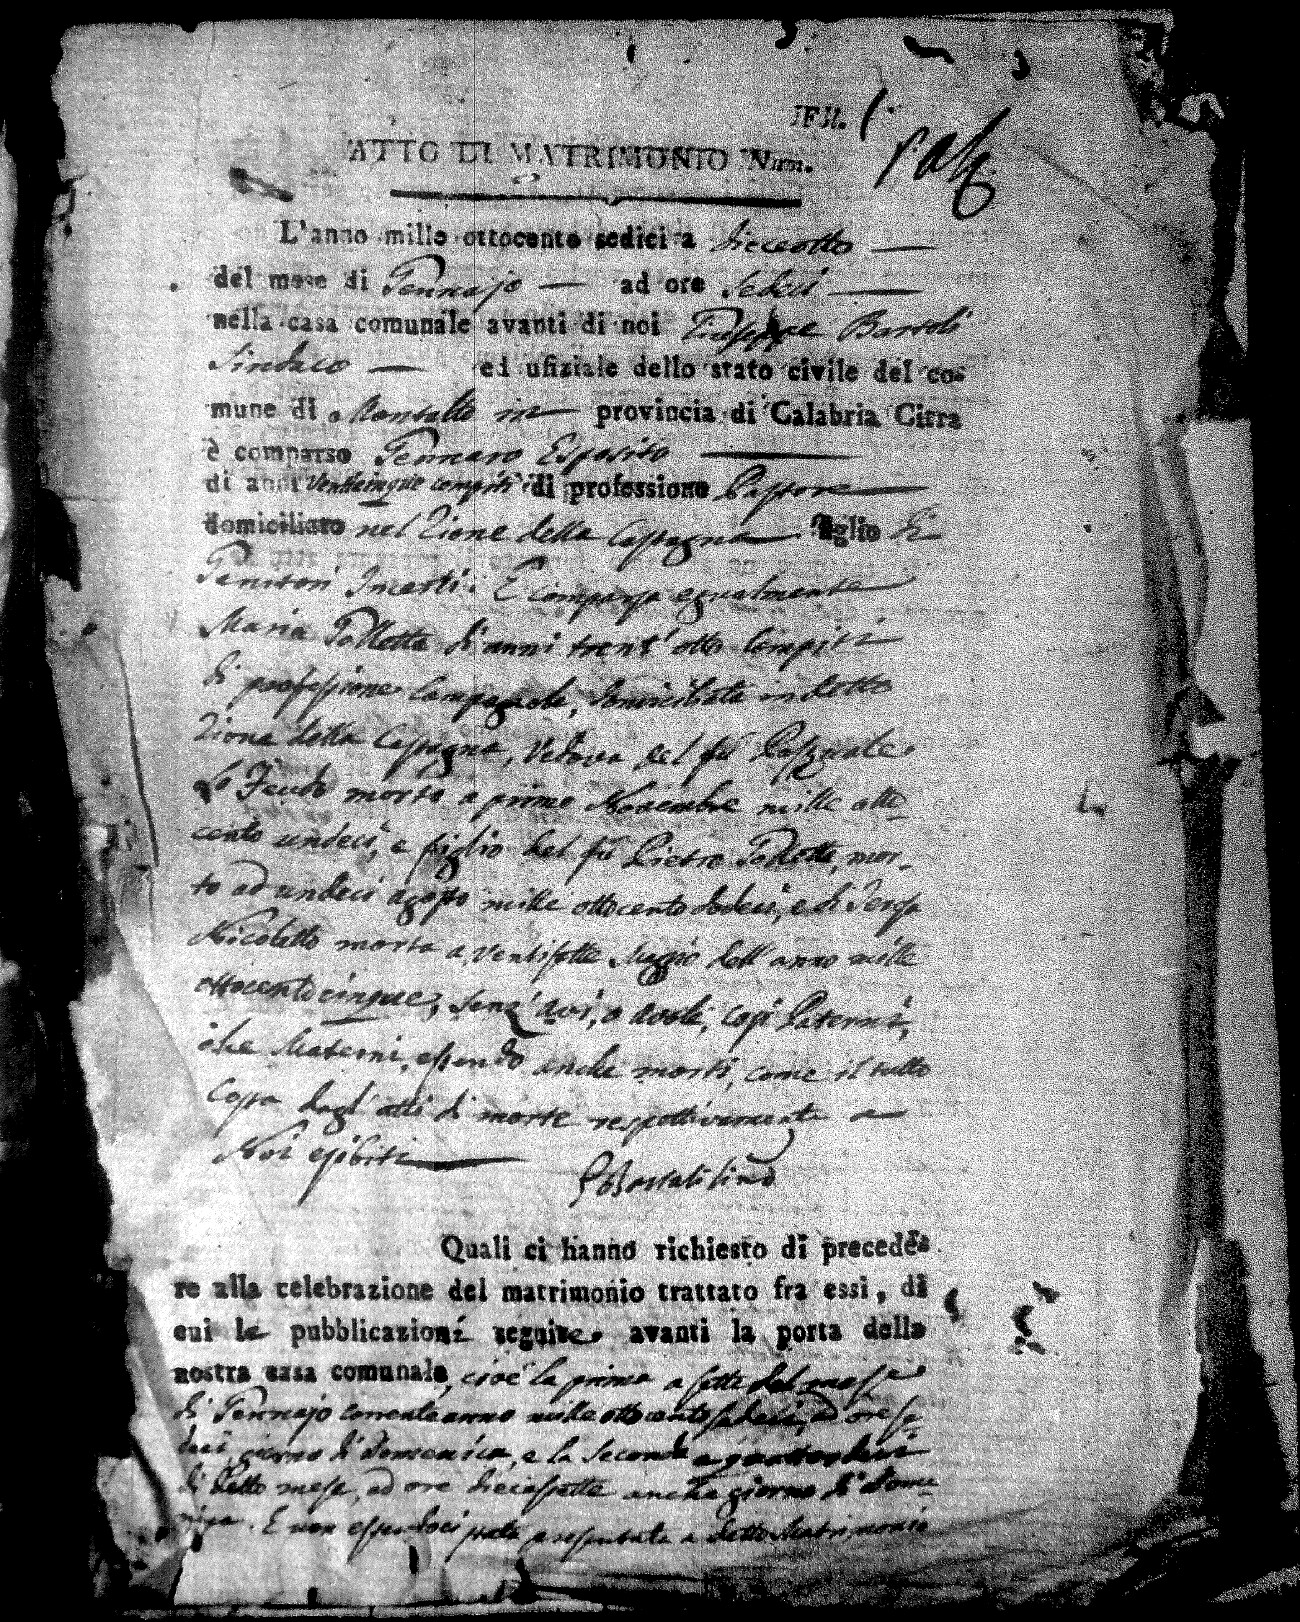 ATTO DI MATRIMONIO Num.
L'anno mille ottocento sedici a dieceotto
del mese di Gennajo ad ore Sedeci
nella casa comunale avanti di noi Giuseppe
Sindaco ed ufiziale dello stato civile del co-
mune di provincia di Calabria Citra
è comparso Gennaro Esposito
di anni Venticinque compiti di professione Pastore
domiciliato nel Zione della figlio di
Genitori Incerti. E comparsa egualmente
Maria di anni trent'otto compiti
di professione Campagnola, domiciliata in detto
Zione della, Vedova del fù Pasquale
Lo morto a primo Novembre mille otto
cento undeci, e figlio del fù Pietro, mor-
to ad undeci agosto mille ottocento dodeci, e di Teresa
Nicoletto morta a ventisette Maggio dell'anno mille
ottocento cinque, senz'avi, o avole, così Paterni,
che Materni, essendo anche morti, come il tutto
Costa dagl'atti di morte respettivamente a
Noi esibiti
Quali ci hanno richiesto di precede-
re alla celebrazione del matrimonio trattato fra essi, di
cui le pubblicazioni seguite avanti la porta della
nostra casa comunale, cioè la prima a sette del mese
di Gennajo corrente anno mille ottocento sedeci, ad ore se-
deci, giorno di Domenica, e la seconda a quattordeci
di detto mese, ad ore diecisette anche giorno di Dome-
nica. E non essendoci stata presentata a detto Matrimonio